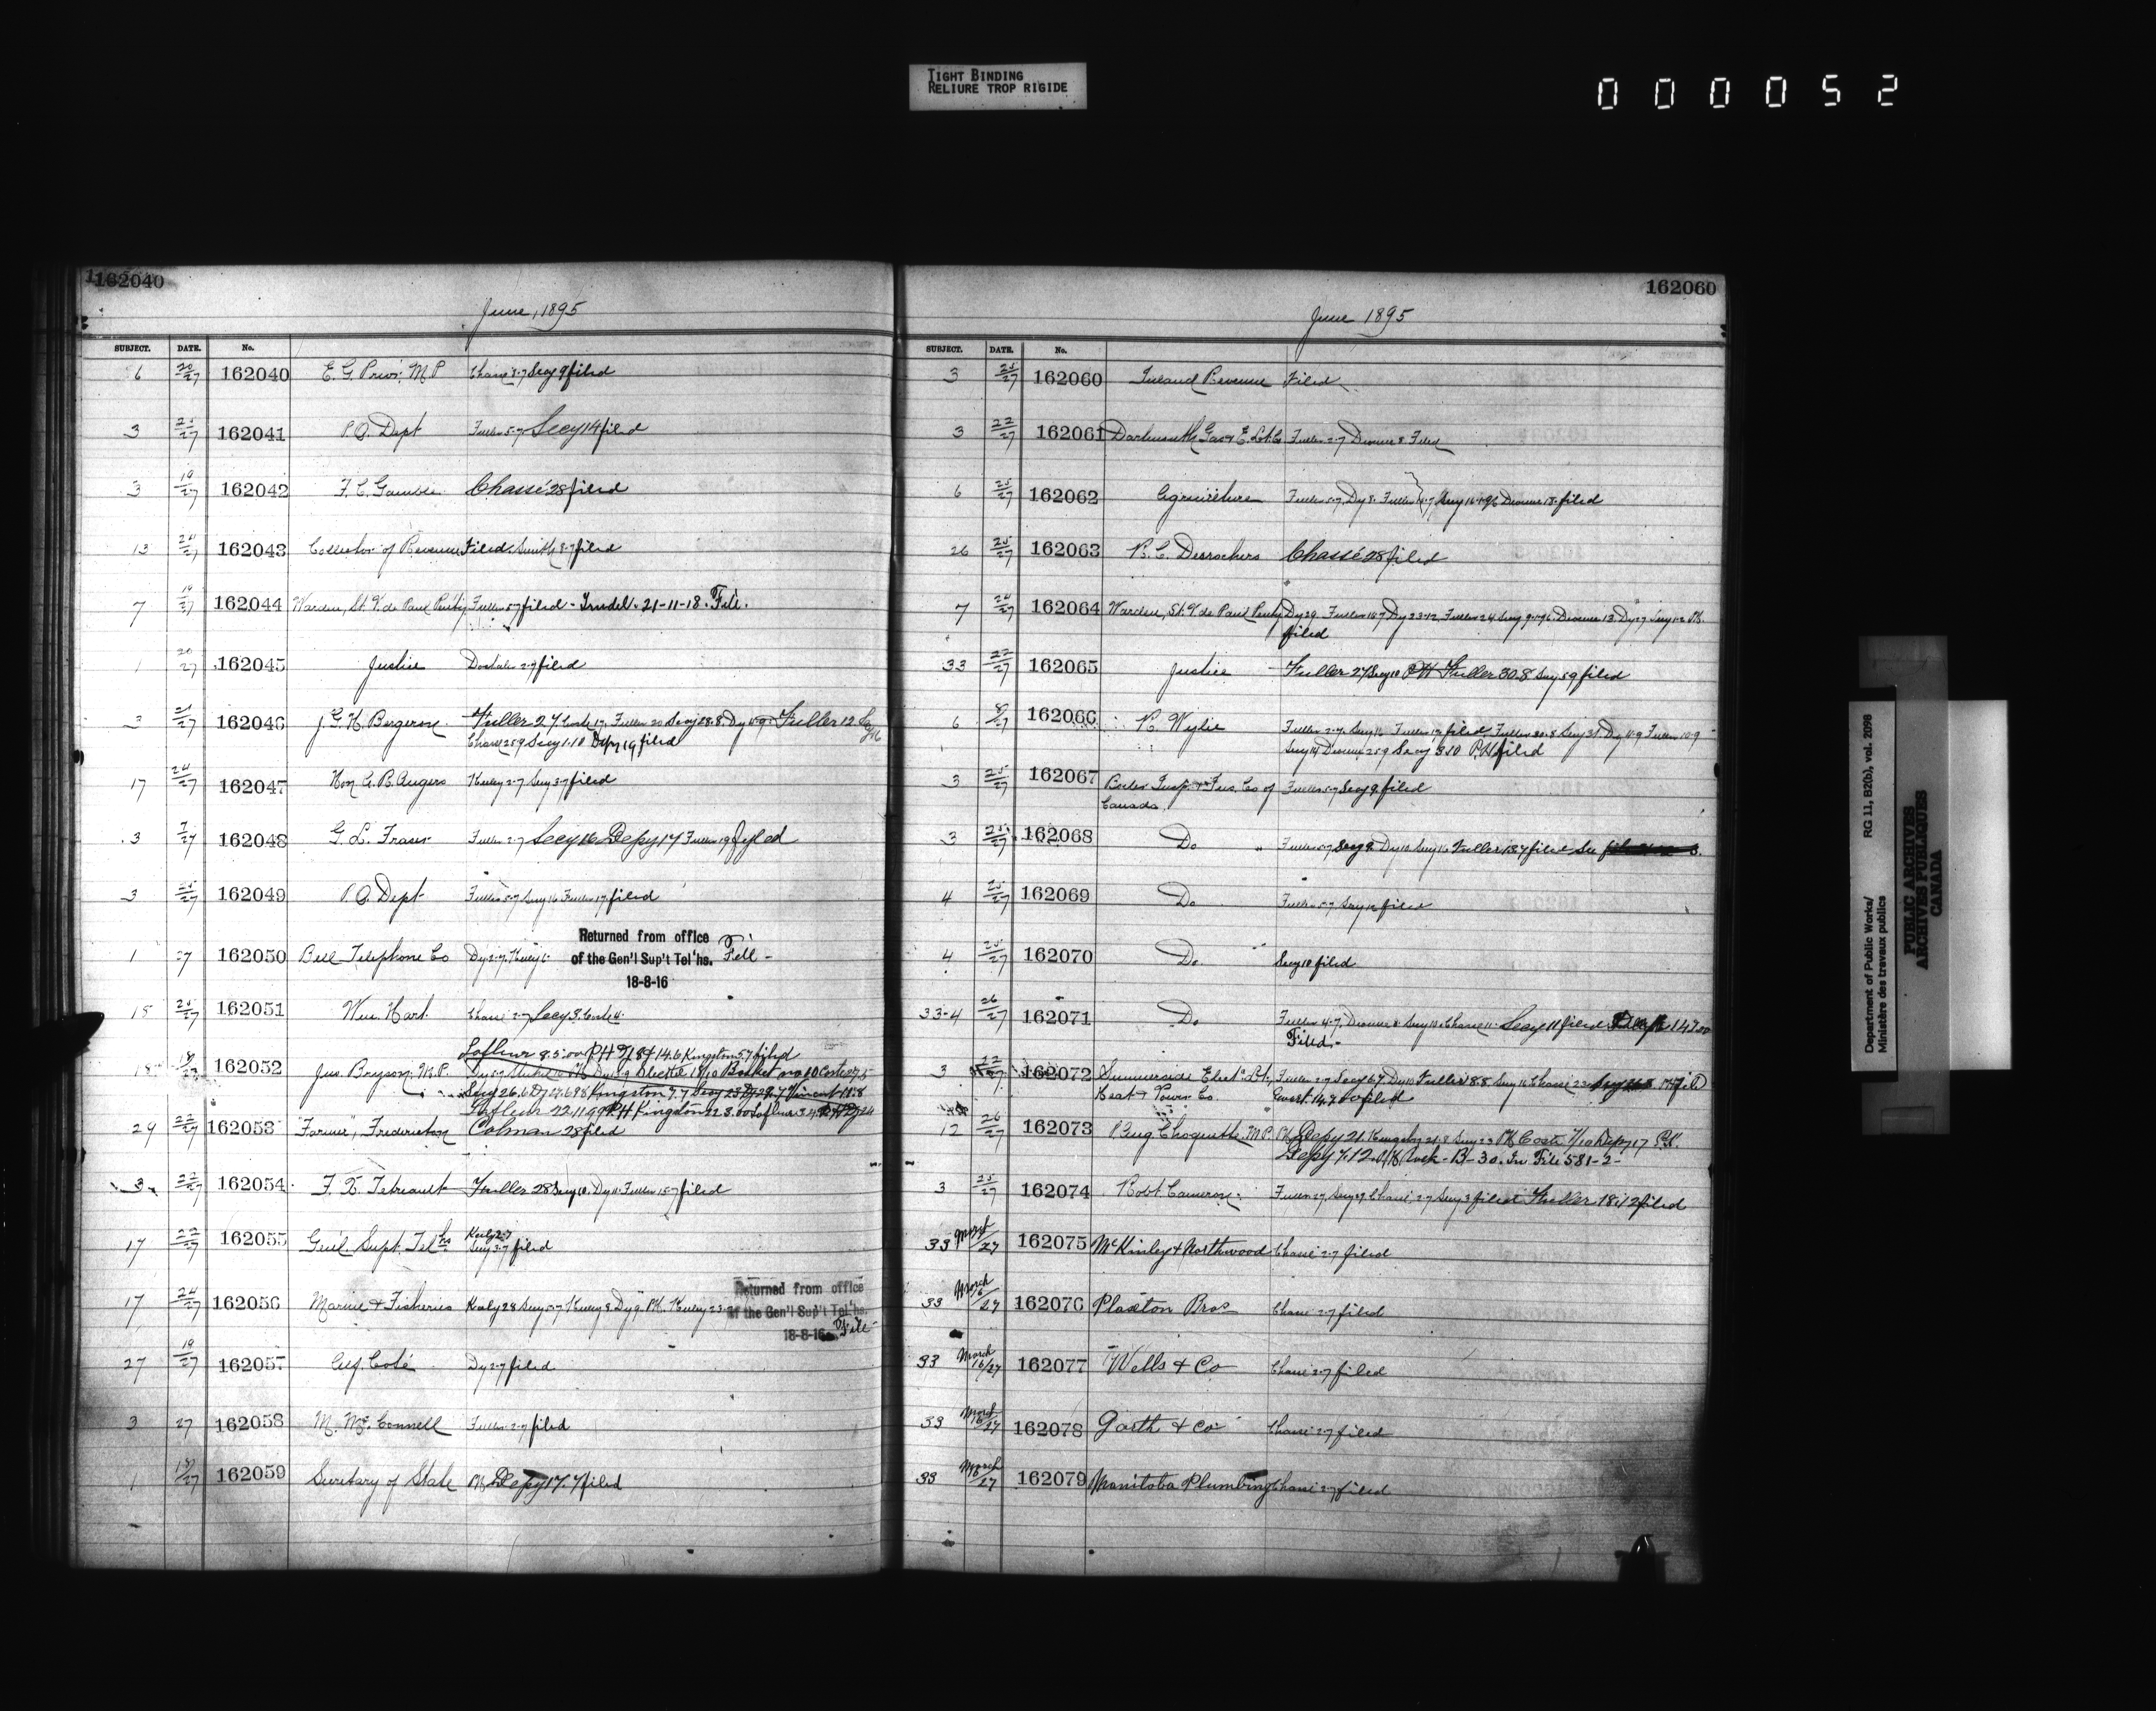 TIGHT BINDING
RELIURE TROP RIGIDE
000052
162040
June, 1895
SUBJECT. DATE. No.
6 20/27 162040 E. G. Prior, M P Chassé 3-7 Secy 9 filed
3 25/27 162041 P.O. Dept Fuller 5-7 Secy 14 filed
3 19/27 162042 F. C. Gamble Chassé 28 filed
13 24/27 162043 Collector of Revenue Filed Smith 8-7 filed
7 19/27 162044 Warden, St. V. de Paul Peny Fuller 5-7 filed - Trudel - 21-11-18. File.
1 20/27 162045 Justice 2-7 filed
3 21/27 162046 J. G. H. Bergeron Fuller 27 Coste 17 Fuller 20 Secy 28.8 Dy 4-9 Fuller 12 Secy 16
Chassé 25 9 Secy 1-10 Depy 19 filed
17 24/27 162047 Hon A. R. Angers Keeley 2-7 Secy 3-7 filed
3 7/27 162048 G. L. Fraser Fuller 2-7 Secy 16 Depy 17 Fuller 19 filed
3 25/27 162049 P.O. Dept Fuller 5-7 Secy 16 Fuller 17 filed
1 27 162050 Bell Telephone Co Dy 2-7 Keeley 6 Returned from office
of the Gen'l Sup't Tel'hs. File -
18-8-16
18 25/27 162051 Wm. Hart Chassé 2-7 Secy 3 Coste 4
Lafleur 8.5.00 PH 14.6 Kingston 5 7 filed
18 18/27 162052 Jno. Bryson, M.P.
Lafleur 22.11.99 PH Kingston 22.3.00 Lafleur 3.4
29 22/27 162053 "Farmer", Fredericton Colman 28 filed
3 22/27 162054 F. X. Tetreault Fuller 28 Secy 10 Dy 11 Fuller 15-7 filed
17 22/27 162055 Genl. Supt. Telhs Keeley 2-7
Secy 3-7 filed
17 24/27 162056 Marine & Fisheries Keeley 28 Secy 5-7 Keeley 8 Dy 9 PH Keeley 23 Returned from office
of the Gen'l Sup't Tel'hs.
18-8-16 File
27 19/27 162057 Aug Coté Dy 2-7 filed
3 27 162058 M. McConnell Fuller 2-7 filed
1 18/27 162059 Secretary of State PH Depy 17.7 filed
162060
June 1895
SUBJECT. DATE. No.
3 25/27 162060 Inland Revenue Filed
3 22/27 162061 Dartmouth Gas & E. Lt. Co Fuller 2-7 8 Filed
6 25/27 162062 Agriculture Fuller 5-7 Dy 8 Fuller Secy 16-1-96 18 filed
26 25/27 162063 R. C. Desrochers Chassé 28 filed
7 24/27 162064 Warden, St. V. de Paul Penty Dy 29 Fuller 18-7 Dy 23-12 Fuller 24 Secy 9-1-96 13 Dy 27 Secy 1-2 PH.
filed
33 22/27 162065 Justice Fuller 27 Secy 10 PH Fuller 30.8 Secy 5 9 filed
6 162066 R. Wylie Fuller 2-7 Secy 16 Fuller 17 filed Fuller 30.8 Secy 31 Dy 4-9 Fuller 10-9
Secy 14 25 9 Secy 3.10 PH filed
3 25/27 162067 Boiler Insp. & Ins. Co of Fuller 5-7 Secy 9 filed
Canada
3 25/27 162068 Do " Fuller 5-7 Secy 9 Dy 10 Secy 16 Fuller 18 7 filed See
4 25/27 162069 Do Fuller 5-7 Secy 12 filed
4 25/27 162070 Do " Secy 10 filed
33-4 26/27 162071 Do Fuller 4-7 8 Secy 10 Chassé 11 Secy 11 filed 14.7.00
Filed -
3 22/27 162072 Summerside Elect. Lt., Fuller 2-7 Secy 6 7 Dy 10 Fuller 8.8 Secy 16 Chassé 23 PH filed
Heat & Power Co. Ewart 14.7.00 filed
12 26/27 162073 P. Aug Choquette, M.P. PH Depy 21 Kingston 21.8 Secy 23 PH Coste 7/10 Depy 17 P.H.
Depy 7.12. PH Rock - B - 30. In File 581-2-
3 25/27 162074 Robt Cameron Fuller 2-7 Secy 2-7 Chassé 2-7 Secy 3 filed Fuller 18.12 filed
33 March /27 162075 McKinley & Northwood Chassé 2-7 filed
33 March 16/27 162076 Plaxton Bros Chassé 2-7 filed
33 March 16/27 162077 Wells & Co Chassé 2-7 filed
33 March 16/27 162078 Garth & Co Chassé 2-7 filed
33 March 16/27 162079 Manitoba Plumbing Chassé 2-7 filed
Department of Public Works/ RG 11, B2(b), vol. 2098
Ministère des travaux publics
PUBLIC ARCHIVES
ARCHIVES PUBLIQUES
CANADA